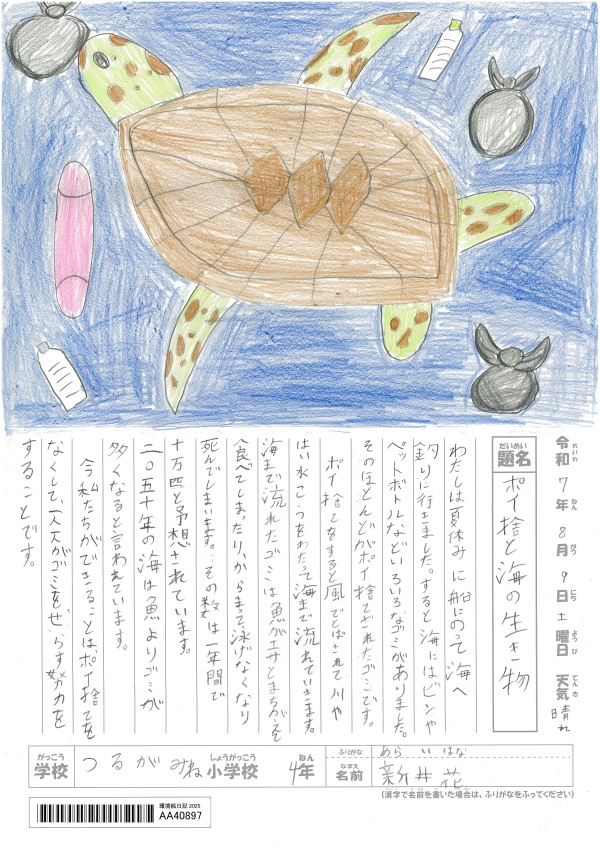 令和7年8月9日土曜日 天気晴れ
れいわ ねん がつ にち ようび てんき
だいめい
題名 ポイ捨と海の生き物
わたしは夏休みに船にのって海へ
釣りに行きました。すると海にはビンや
ペットボトルなどいろいろなゴミがありました。
そのほとんどがポイ捨てされたゴミです。
ポイ捨てをすると風でとばされて川や
はい水こうをわたって海まで流れていきます。
海まで流れたゴミは魚がエサとまちがえて
食べてしまったり、からまって泳げなくなり
死んでしまいます。その数は一年間で
十万匹と予想されています。
二〇五十年の海は魚よりゴミが
多くなると言われています。
今私たちができることは、ポイ捨てを
なくして、一人一人がゴミをせらす努力を
することです。
がっこう しょうがっこう ねん ふりがな あらい はな
学校 つるがみね小学校 4年 なまえ 名前 新井花
(漢字で名前を書いた場合は、ふりがなをふってください)
環境絵日記 2025
AA40897